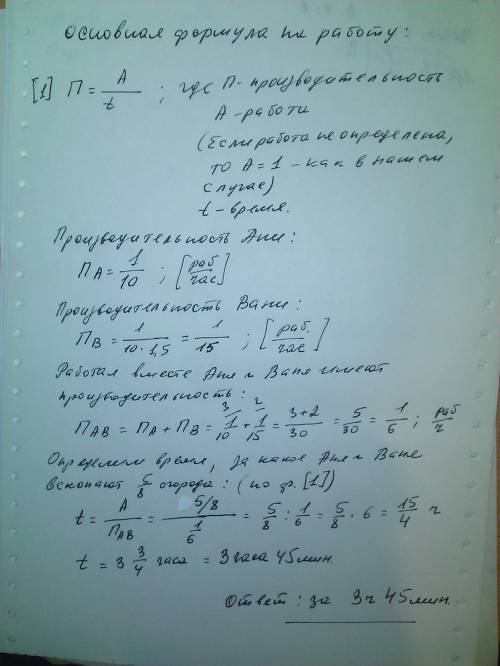 Основная формула на работу:
[1] П = A/t ; где П - производительность
А - работы
(Если работа не определена,
то А = 1 - как в нашем
случае)
t - время.
Производительность Ани:
П_A = 1/10 ; [раб/час]
Производительность Вани:
П_B = 1/(10·1,5) = 1/15 ; [раб./час]
Работая вместе Аня и Ваня имеют
производительность:
П_AB = П_A + П_B = 1/10 (3) + 1/15 (2) = (3+2)/30 = 5/30 = 1/6 ; раб/ч
Определим время, за какое Аня и Ваня
вскопают 5/8 огорода: (по ф. [1])
t = A/П_AB = (5/8)/(1/6) = 5/8 : 1/6 = 5/8 · 6 = 15/4 ч
t = 3 3/4 часа = 3 часа 45 мин.
Ответ: за 3ч 45 мин.